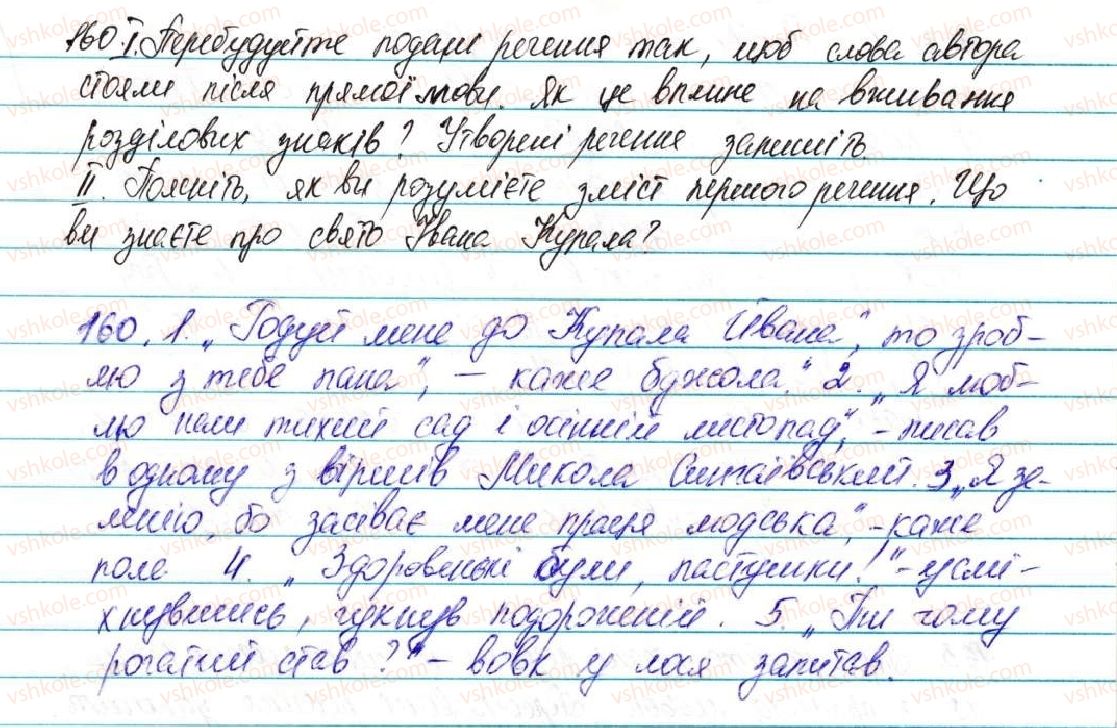 160. I. Перебудуйте подані речення так, щоб слова автора
стояли після прямої мови. Як це вплине на вживання
розділових знаків? Утворені речення запишіть
II. Поясніть, як ви розумієте зміст першого речення. Що
ви знаєте про свято Івана Купала?
160. 1. „Годуй мене до Купала Йвана", то зроб-
лю з тебе пана", – каже бджола." 2. „Я люб-
лю наш тихий сад і осінній листопад", – писав
в одному з віршів Микола Сингаївський. 3 „Я зе-
ленію, бо засіває мене праця людська", – каже
поле 4. „Здоровенькі були, пастушки!" – усмі-
хнувшись, гукнув подорожній. 5. „Ти чому
рогатий став?" – вовк у лося запитав.